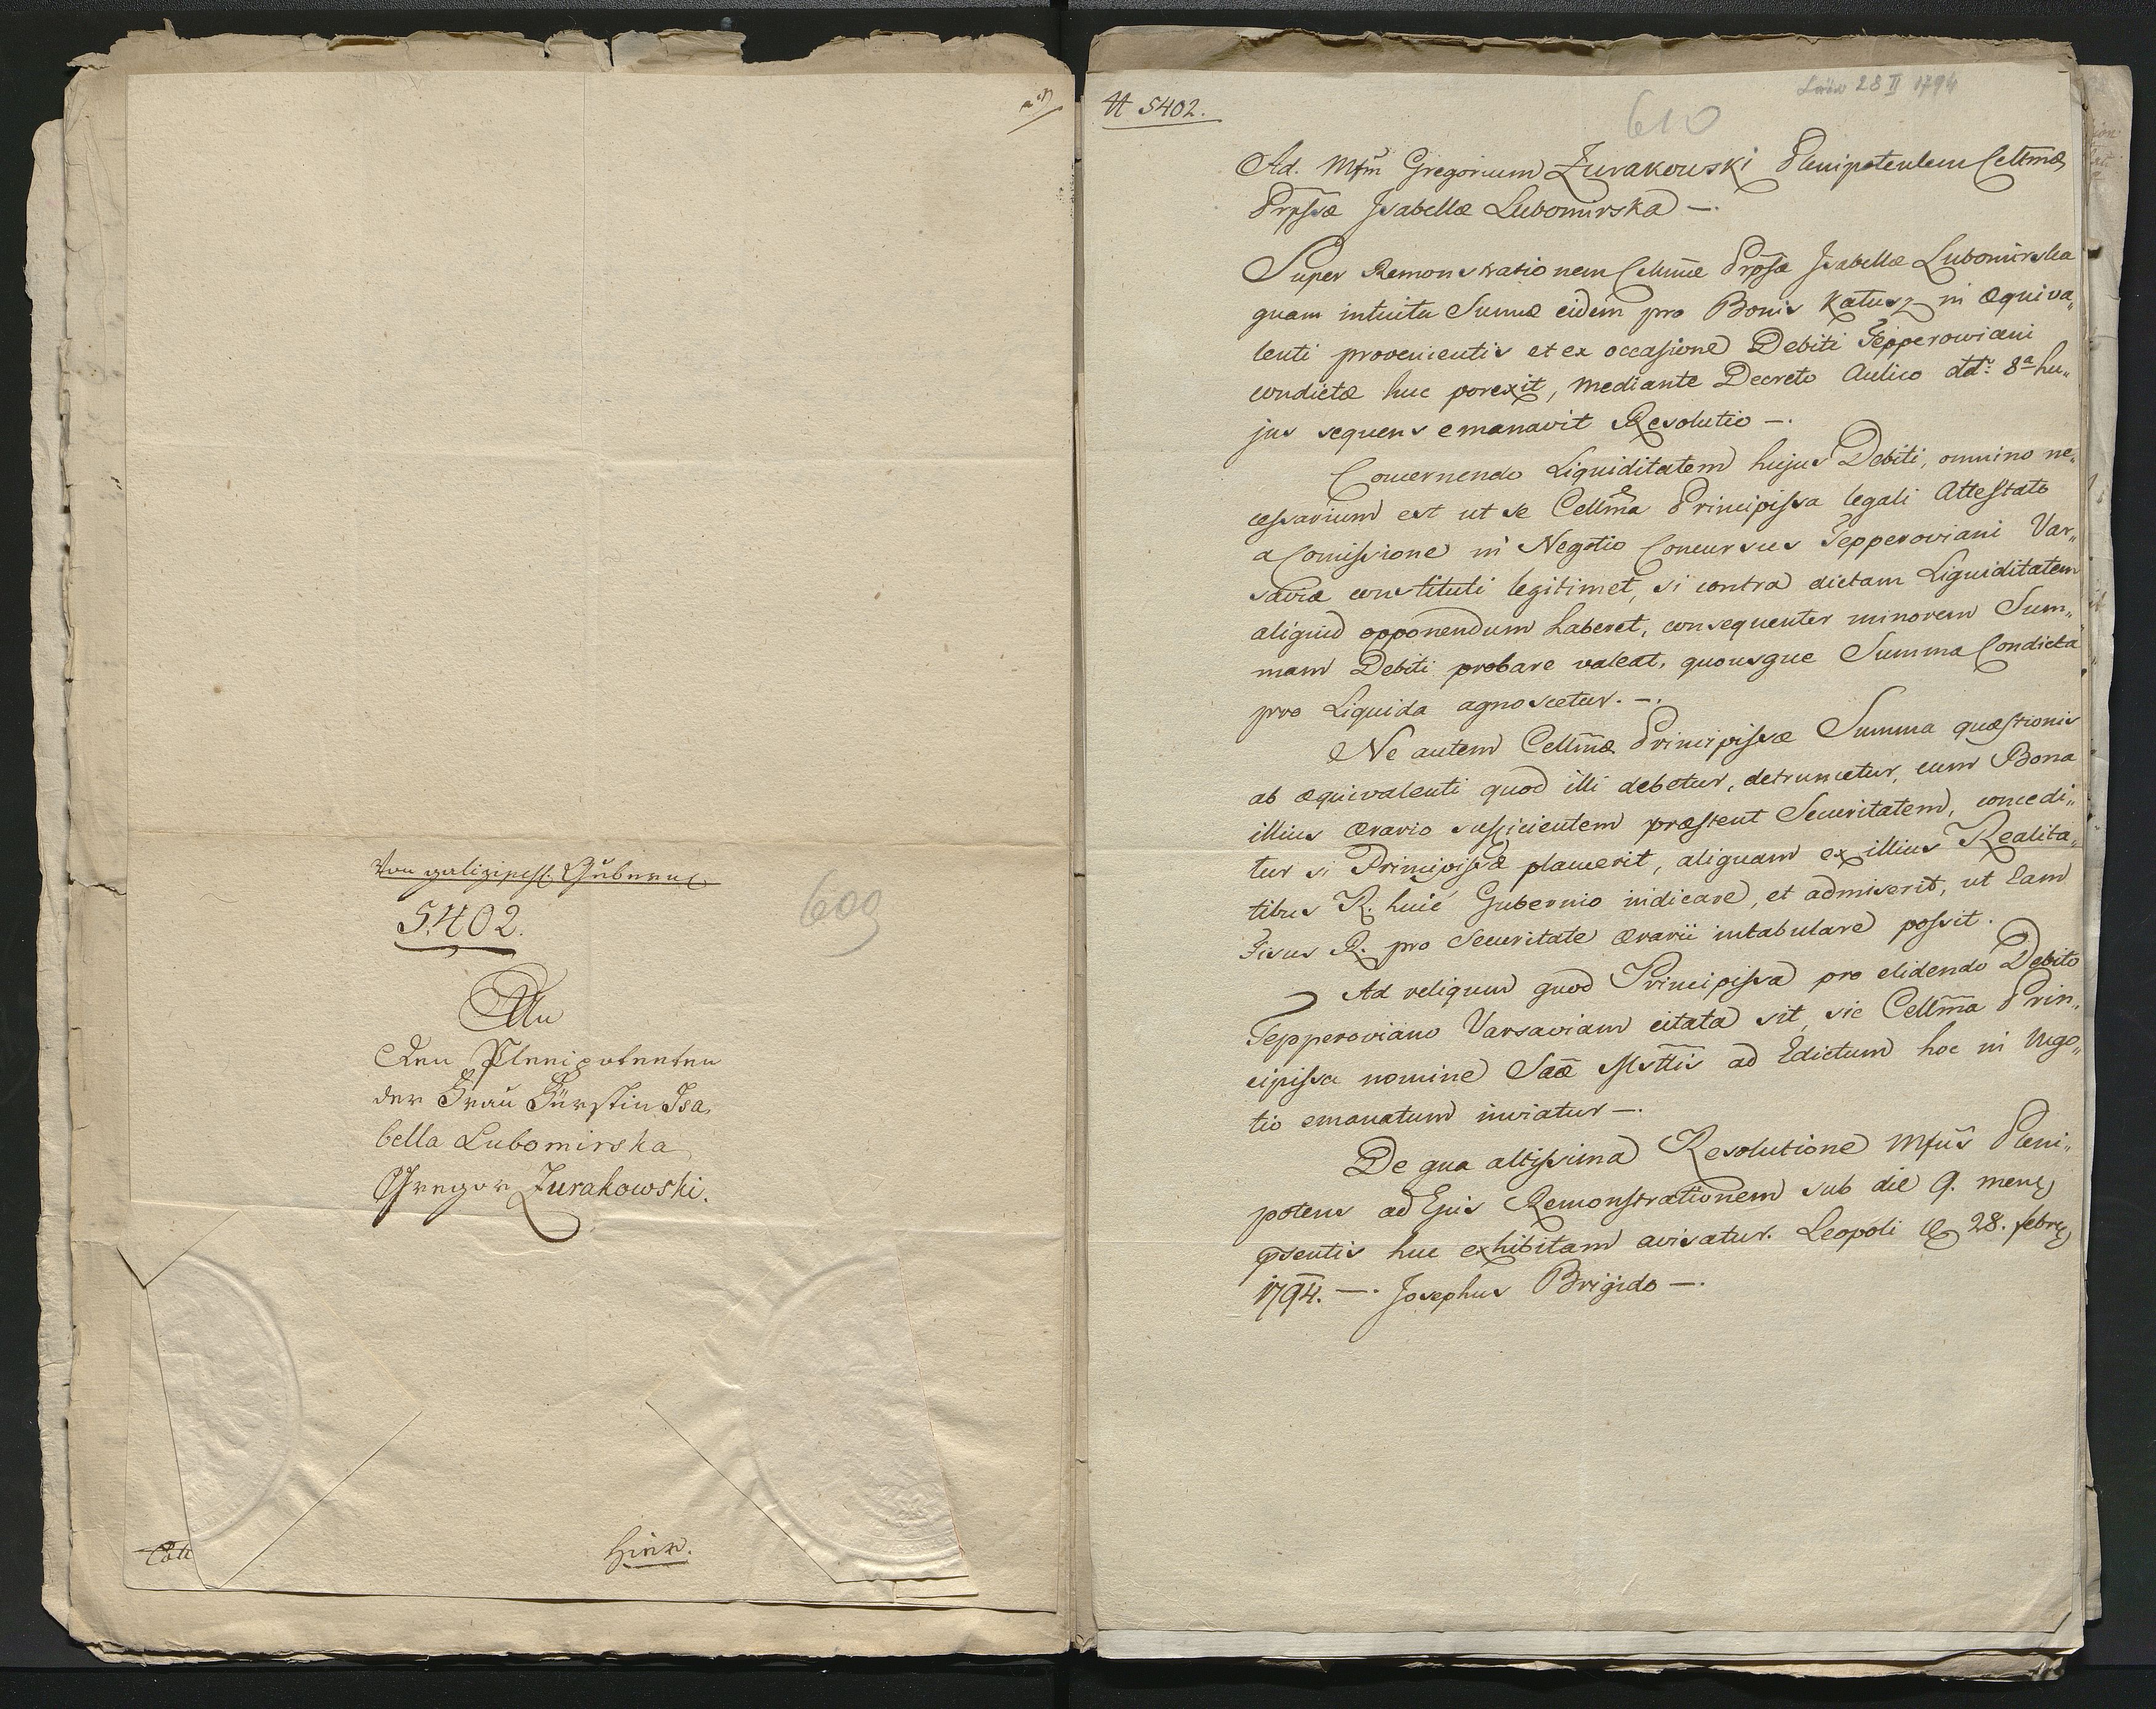 Von galizischen Gubernio
5402.
An
den Plenipotenten
der Frau Fürstin Isa„
bella Lubomirska
Gregor Żurakowski.
609
hier.
N 5402.
Lwów 28 II 1794
610
Ad. Mfm̄ Gregorium Żurakowski Plenipotentem Cellmæ
Prpſsæ Isabellæ Lubomirska —.
Super Remonstrationem Cellmæ Prpſsæ Isabellæ Lubomirska
quam intuitu Sumæ eidem pro Bonis Kałusz in æquiva„
lenti provenientis et ex occasione Debiti Tepperowiani
condictæ huc porexit, mediante Decreto Aulico ddto: 8a hu„
jus sequens emanavit Resolutio —.
Concernendo Liquiditatem hujus Debiti, omnino ne„
cessarium est ut se Cellma Principissa legali Attestato
a Comissione in Negotio Concursus Tepperoviani Var„
saviæ constituti legitimet, si contra dictam Liquiditatem
aliquid opponendum haberet, consequenter minorem Sum„
mam Debiti probare valeat, quousque Summa Condicta
pro Liquida agnoscetur. —.
Ne autem Cellmæ Principissæ Summa quæstionis
ab æquivalenti quod illi debetur, detruncetur, cum Bona
illius ærario sufficientem præstent Securitatem, concedi„
tur si Principissæ placuerit, aliquam ex illius Realita„
tibus R. huic Gubernio indicare, et admiserit, ut Eam
Fiscus R. pro Securitate ærarii intabulare possit.
Ad reliquum quod Principissa pro elidendo Debito
Tepperoviano Varsaviam citata sit, sic Cellma Prin„
cipissa nomine Saæ Mſttis ad Edictum hoc in Nego„
tio emanatum inviatur —.
De qua altissima Resolutione Mfus Pleni„
potens ad Ejus Remonstrationem sub die 9. mens
pſentis huc exhibitam avisatur. Leopoli d 28. febr
1794. —. Josephus Brigido —.